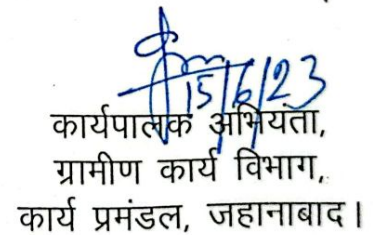 15/6/23
कार्यपालक अभियंता,
ग्रामीण कार्य विभाग,
कार्य प्रमंडल, जहानाबाद।